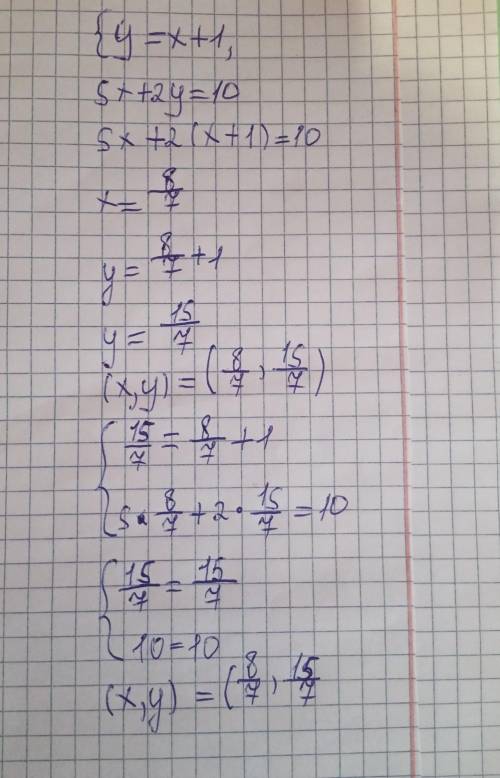 {y=x+1,
5x+2y=10
5x+2(x+1)=10
x=8/7
y=8/7+1
y=15/7
(x,y)=(8/7,15/7)
{15/7=8/7+1
5*8/7+2·15/7=10
{15/7=15/7
10=10
(x,y)=(8/7,15/7